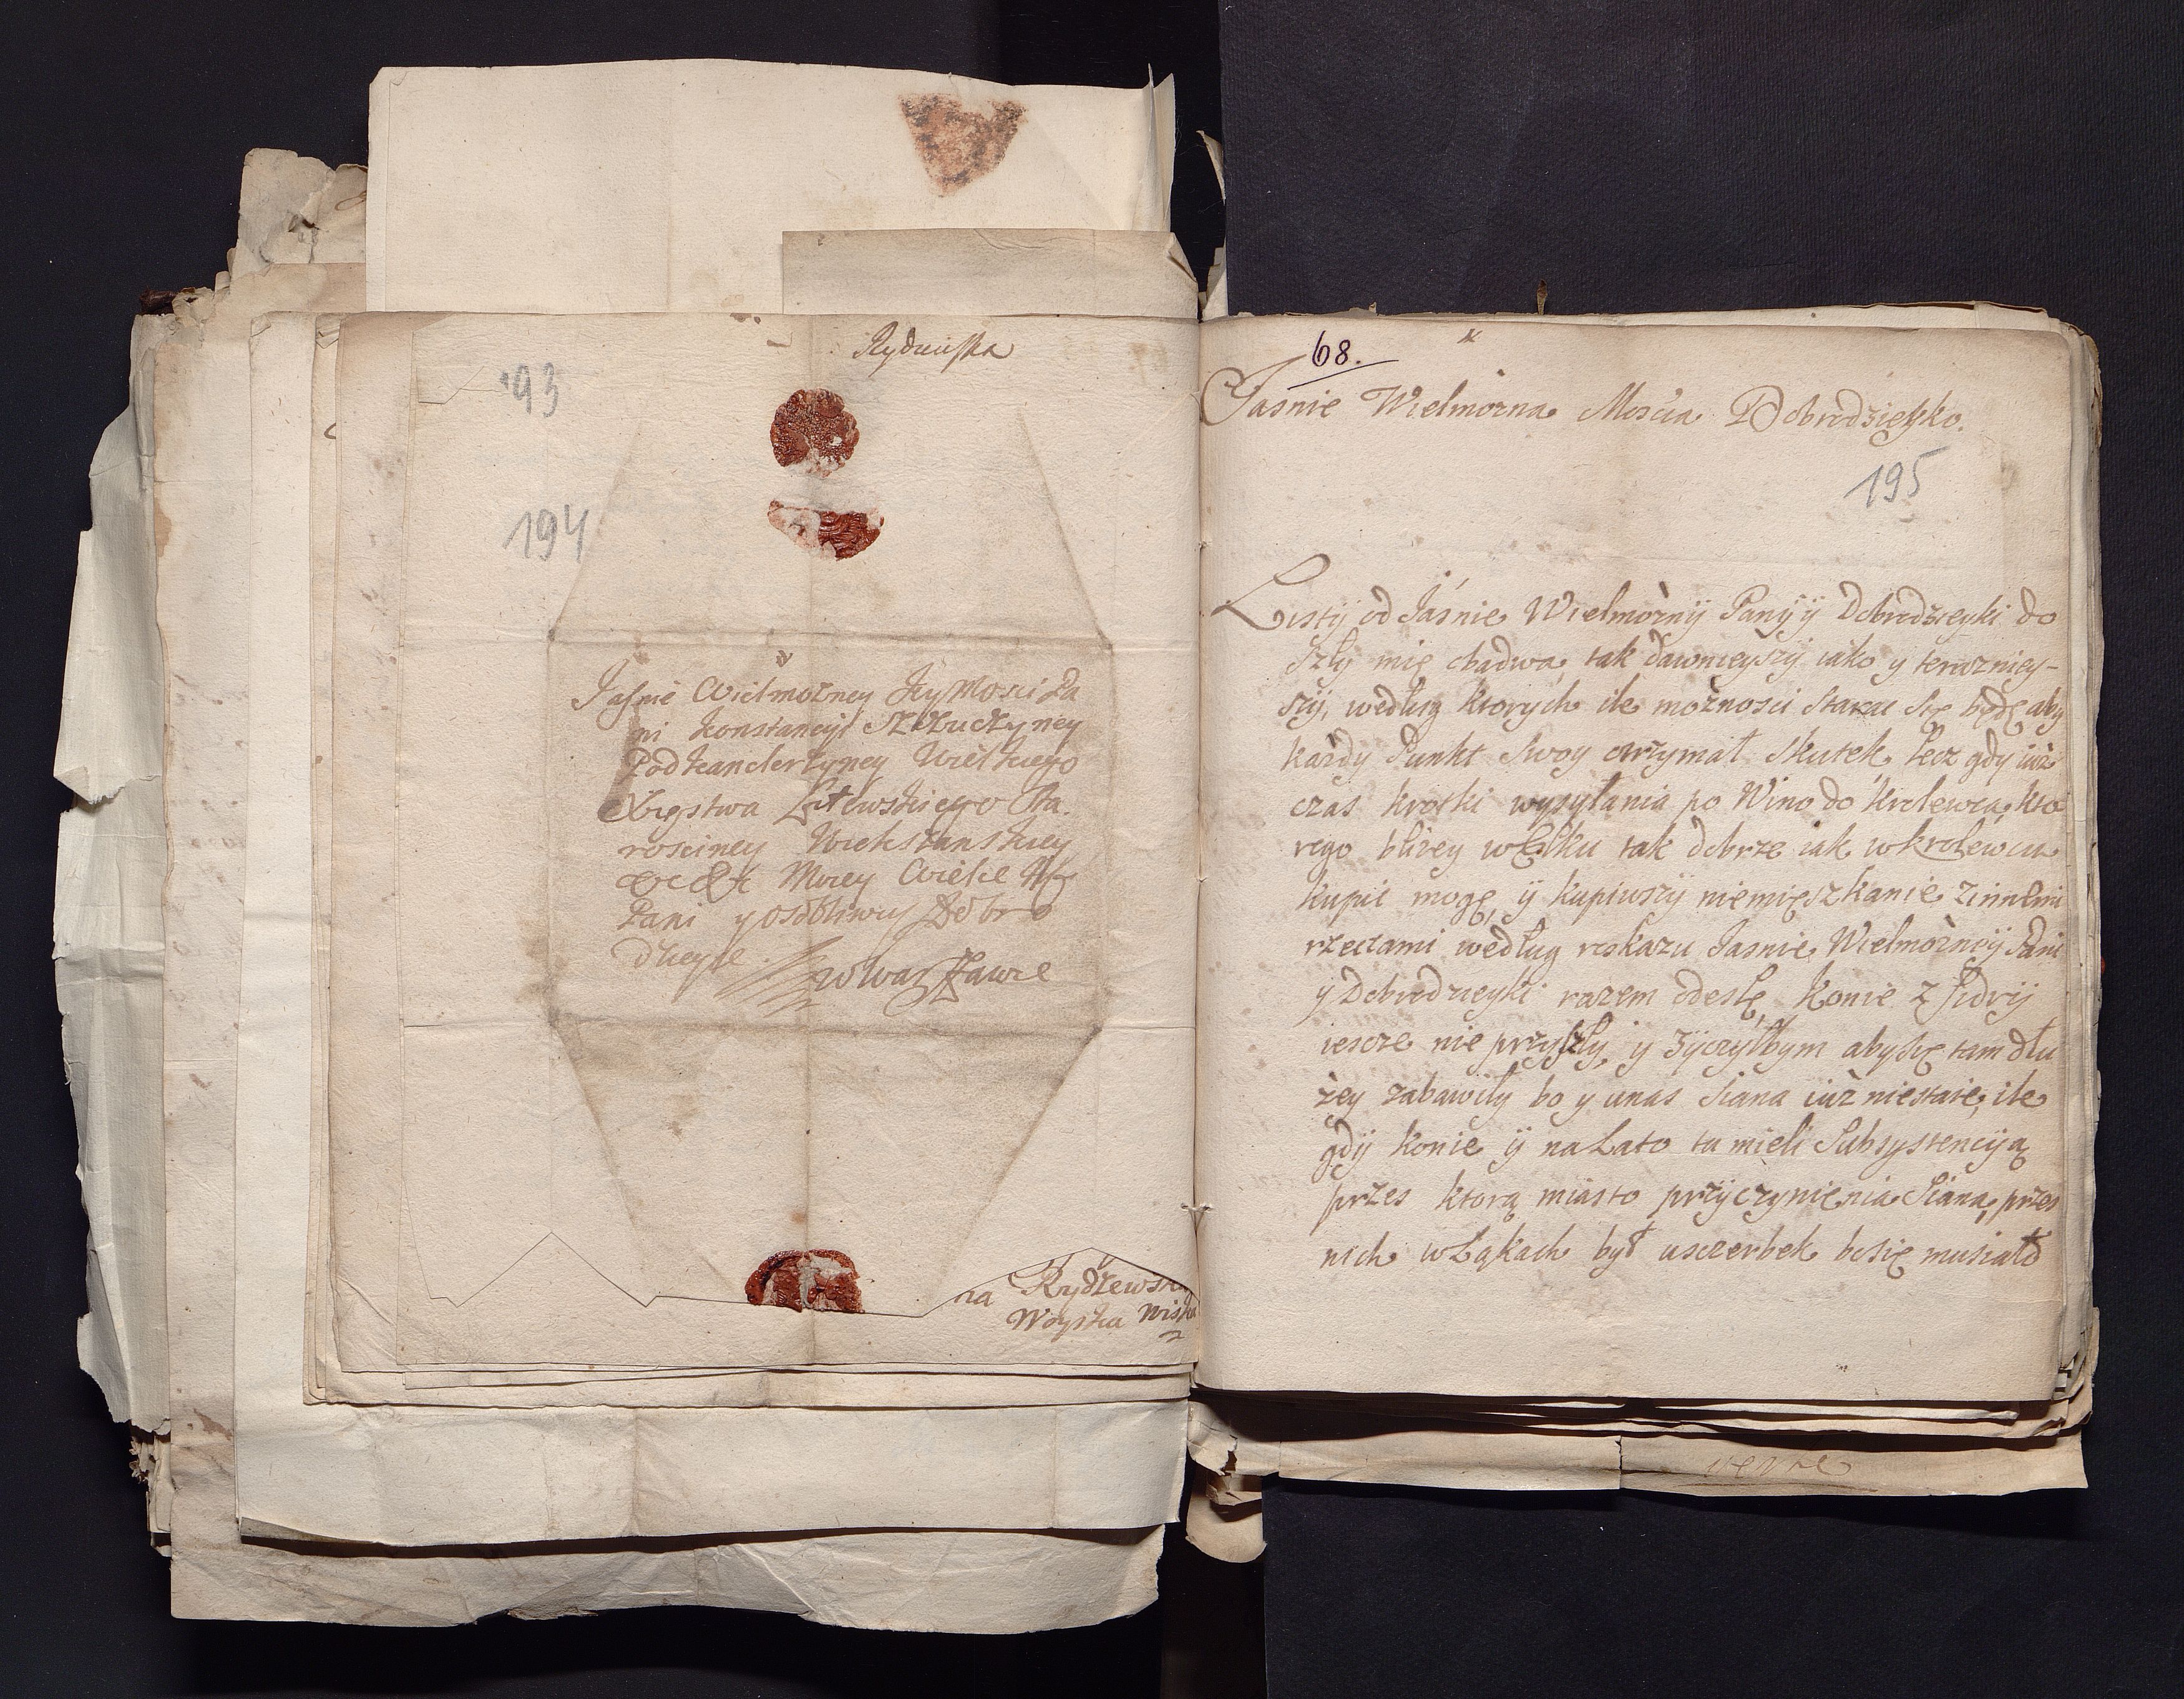 Rydzewska
193
194
Jaśnie Wielmozney Jey Mosci Pa
ni Konstancyi Szczuczyney
Podkanclerzyney Wielkiego
Xięstwa Litewskiego Sta.
rosciney
&c &c Moiey Wielce Mſ
Pani y osobliwey Dobro
dzieyce.
w Warszawie
na Rydzewsk
Woyska Wisk
68.
Jasnie Wielmożna Mościa Dobrodzieyko.
195
Listÿ od Jaśnie Wielmożnÿ Panÿ ÿ Dobrodzieyki do
szły mię obadwa, tak dawnieyszÿ iako y teraznieÿ-
szÿ, według ktorych ile możnosci starac się będę aby
każdy Punkt swoy otrzymał skutek, lecz gdy iuż
czas krotki wysyłania po Wino do Krolewca, kto
rego bliżey w Ełku tak dobrze iak w krolewcu
kupić mogę, ÿ kupiwszÿ niemięszkanie z innemi
rzeczami według roskazu Jasnie Wielmożnÿ Pani
ÿ Dobrodzieyki razem odeslę, Konie z Sidrÿ
iescze nie przyszłÿ, y zÿczÿłbym abysię tam dłu
żey zabawiły bo y unas siana iuż niestaie, ile
gdÿ konie ÿ na Lato tu mieli Subsystencÿą
przes ktorą miasto przÿczynięnia Siana, przes
nich w Łąkach był usczerbek bosię musiało